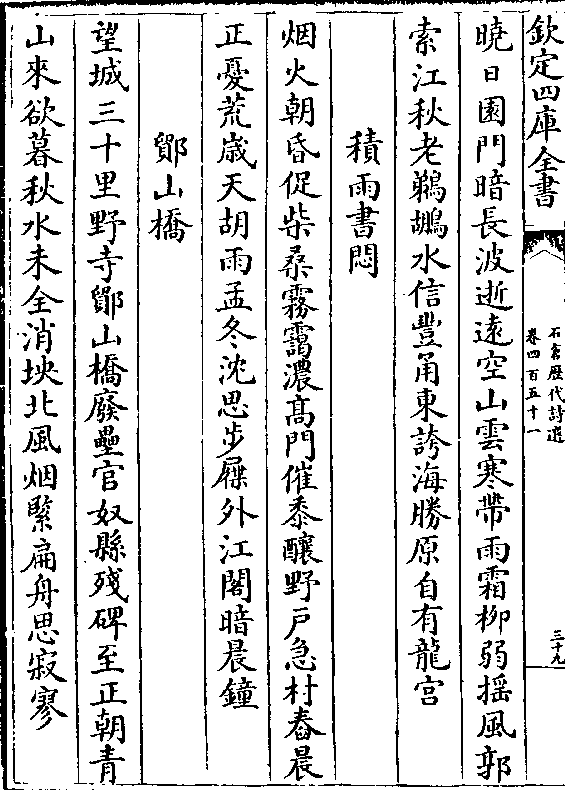 欽定四庫全書
石倉歴代詩選
卷四百五十一
三十九
曉日園門暗長波逝遠空山雲寒帶雨霜柳弱揺風郭
索江秋老鵜鶘水信豐甬東誇海勝原自有龍宫
積雨書悶
烟火朝昏促柴桑霧靄濃髙門催黍釀野戸急村舂晨
正憂荒歳天胡雨孟冬沈思步屧外江閣暗晨鐘
鄮山橋
望城三十里野寺鄮山橋廢壘官奴縣殘碑至正朝青
山來欲暮秋水未全消坱北風烟緊扁舟思寂寥